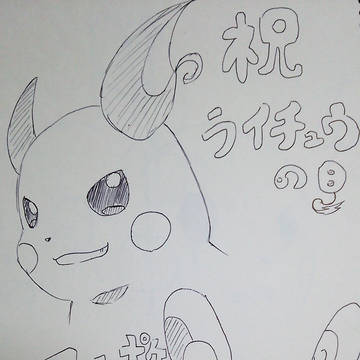 祝
ライチュウ
の日